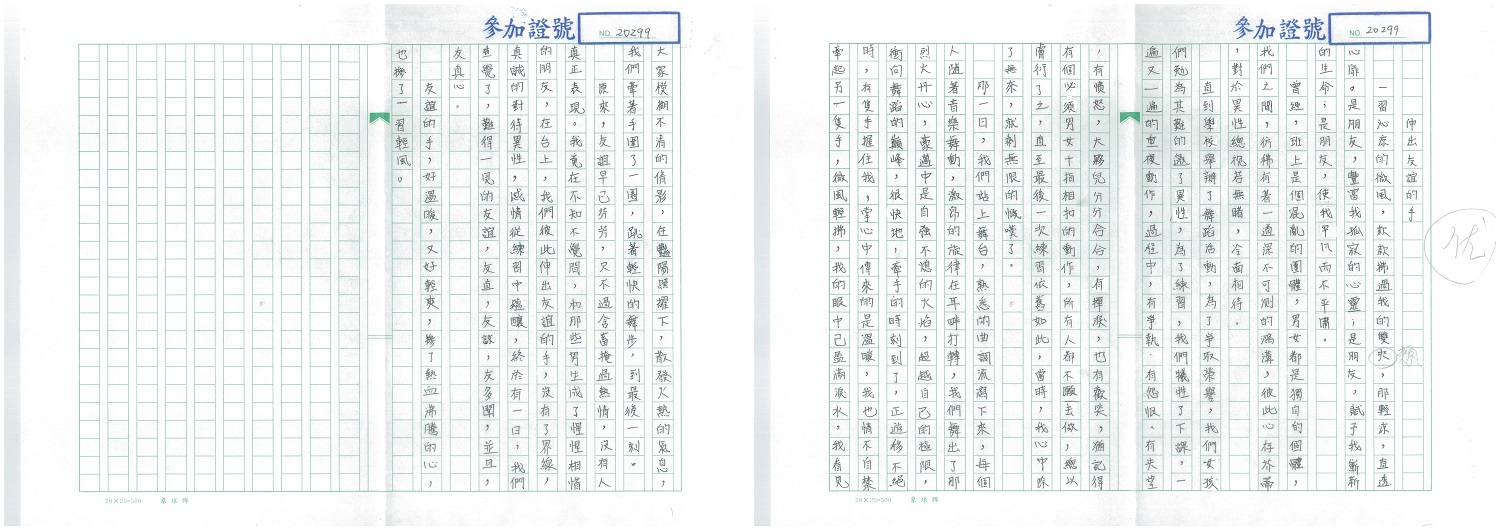 參加證號
NO. 20299
伸出友誼的手
一習沁涼的微風，款款拂過我的雙
那輕涼，直透
心扉。是朋友，豐富我孤寂的心靈；是朋友，賦予我嶄新
的生命；是朋友，使我平凡而不平庸。
曾經，班上是個混亂的團體，男女都是獨自的個體，
我們之間，彷彿有著一道深不可測的鴻溝，彼此心存芥蒂
，對於異性總視若無睹，冷面相待。
直到學校舉辦了舞蹈活動，為了爭取榮譽，我們女孩
們勉為其難的邀了異性，為了練習，我們犧牲了下課，一
遍又一遍的重複動作，過程中，有爭執、有怨恨、有失望
，有憤怒，大夥兒分分合合，有揮淚，也有歡笑，猶記得
有個必須男女十指相扣的動作，所有人都不願去做，總以
膚衍了之，直至最後一次練習依舊如此，當時，我心中除
了無奈，就剩無限的慨嘆了。
那一日，我們站上舞台，熟悉的曲調流瀉下來，每個
人隨著音樂舞動，激昂的旋律在耳畔打轉，我們舞出了那
烈火丹心，豪邁中是自強不息的火焰，超越自己的極限，
衝向舞蹈的巔峰，很快地，牽手的時刻到了，正遊移不絕
時，有隻手握住我，掌心中傳來的是溫暖，我也情不自禁
牽起另一隻手，微風輕拂，我的眼中已盈滿淚水，我看見
优
參加證號
NO. 20299
大家模糊不清的倩影，在豔陽照耀下，散發火熱的氣息，
我們牽著手圍了一圈，跳著輕快的舞步，到最後一刻。
原來，友誼早已芬芳，只不過含蓄掩過熱情，沒有人
真正表現。我竟在不知不覺間，和那些男生成了惺惺相惜
的朋友，在台上，我們彼此伸出友誼的手，沒有了界線，
真誠的對待異性，感情從練習中醞釀，終於有一日，我們
查覺了，難得一見的友誼，友直，友諒，友多聞，並且，
友真心。
友誼的手，好溫暖，又好輕爽，摻了熱血沸騰的心，
也摻了一習輕風。
20×25=500